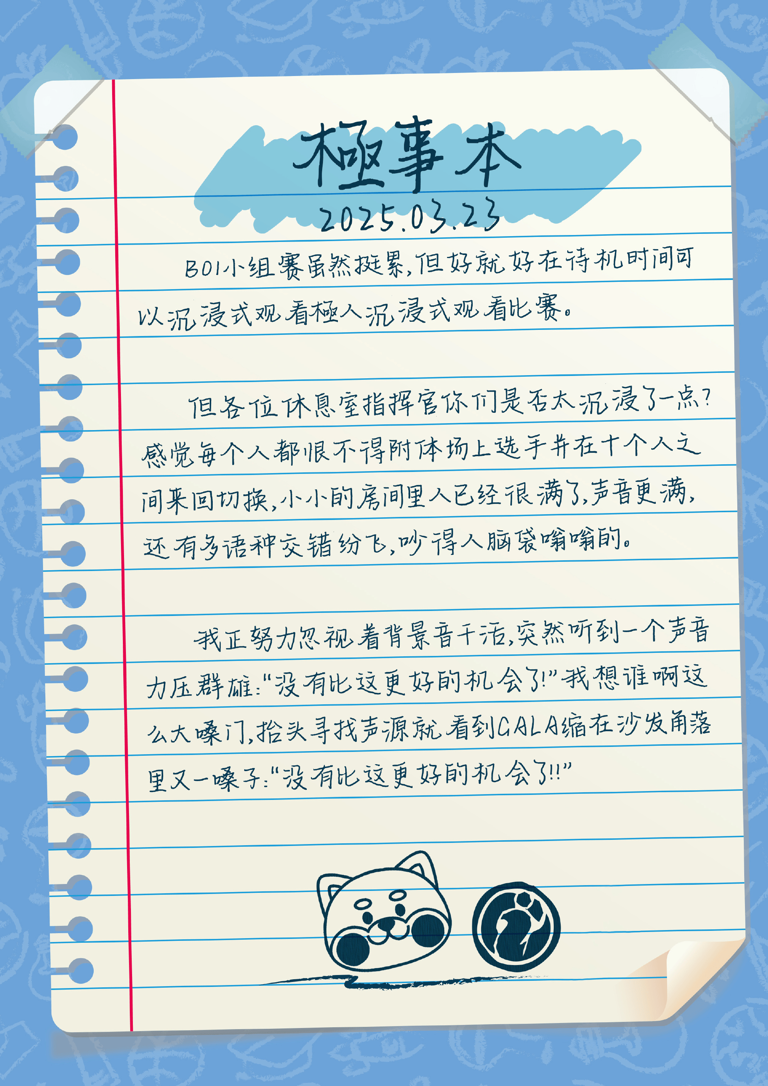 極事本
2025.03.23
BO1小组赛虽然挺累,但好就好在待机时间可
以沉浸式观看極人沉浸式观看比赛。
但各位休息室指挥官你们是否太沉浸了一点?
感觉每个人都恨不得附体场上选手并在十个人之
间来回切换,小小的房间里人已经很满了,声音更满,
还有多语种交错纷飞,吵得人脑袋嗡嗡的。
我正努力忽视着背景音干活,突然听到一个声音
力压群雄:“没有比这更好的机会了!”我想谁啊这
么大嗓门,抬头寻找声源就看到GALA缩在沙发角落
里又一嗓子:“没有比这更好的机会了!!”